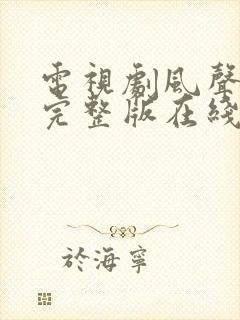 電視劇風聲
完整版在綫
於海寧